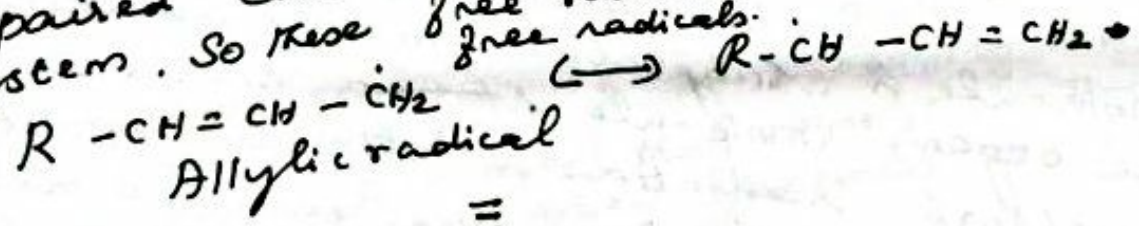 paired
stem. So these free
free radicals.
R - CH = CH - ĊH₂ ⟷ R - ĊH - CH = CH₂
Allylic radical
=